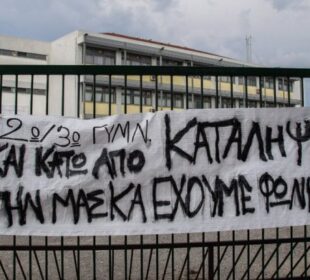 2ο/3ο ΓΥΜΝ. ΚΑΤΑΛΗΨ
ΚΑΙ ΚΑΤΩ ΑΠΟ
ΤΗΝ ΜΑΣΚΑ ΕΧΟΥΜΕ ΦΩΝ